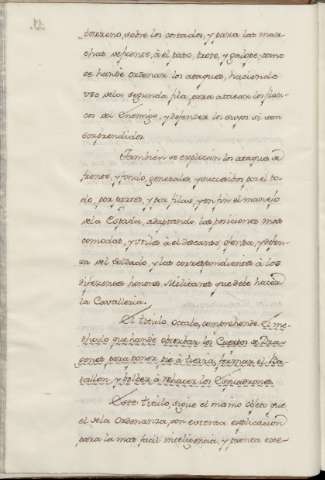 terreno, sobre los costados, y para las mar-
chas de frente, á el paso, trote, y galope, como
se han de ordenar los ataques, haciendo
uso de la segunda fila, para atacar los flan-
cos del Enemigo, y defender los suyos si son
sorprendidos.
Tambien se explican los ataques de
frente, y fondo, generales, y sucesibos por el to-
do, por partes, y por filas, y en fin el manejo
de la Espada, adaptando las posiciones mas
comodas, y utiles á el descanso, ofensa, y defen-
sa del Soldado, y las correspondientes á los
diferentes honores Militares que debe hacer
la Cavalleria.
El titulo Octavo, comprehende el me-
thodo que han de observar los Cuerpos de Dra-
gones para poner pie á tierra, formar el Ba-
tallon, y bolber á rehacer los Esquadrones.
Este titulo, sigue el mismo objeto que
el de la Ordenanza, con extensa explicacion
para la mas facil inteligencia, y pronta exe-